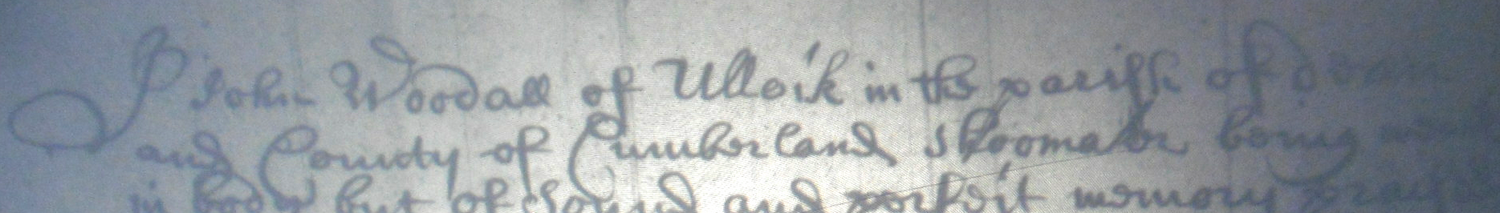 I John Woodall of Ulloik in the parish of Dean
and County of Cumberland Shoomaker being weak
in body but of Sound and perfeit memory praised